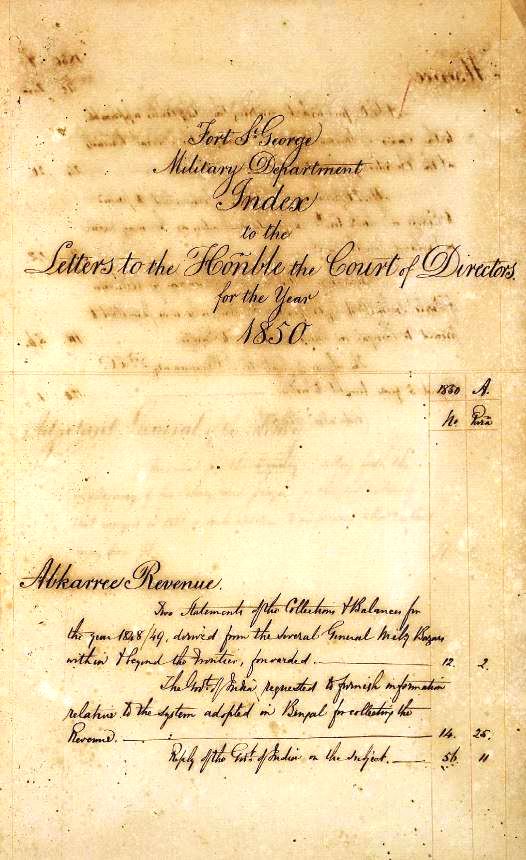 Fort St. George
Military Department
Index
to the
Letters to the Honble the Court of Directors.
for the Year
1850.
1850 A.
No Para
Abkarree Revenue.
Two Statements of the Collections & Balances for
the year 1848/49, derived from the several General Mily Bazars
within & beyond the Frontier, forwarded. 12. 2.
The Govt. of India requested to furnish information
relative to the system adopted in Bengal for collecting the
Revenue. 14. 25.
Reply of the Govt. of India on the subject. 56 11